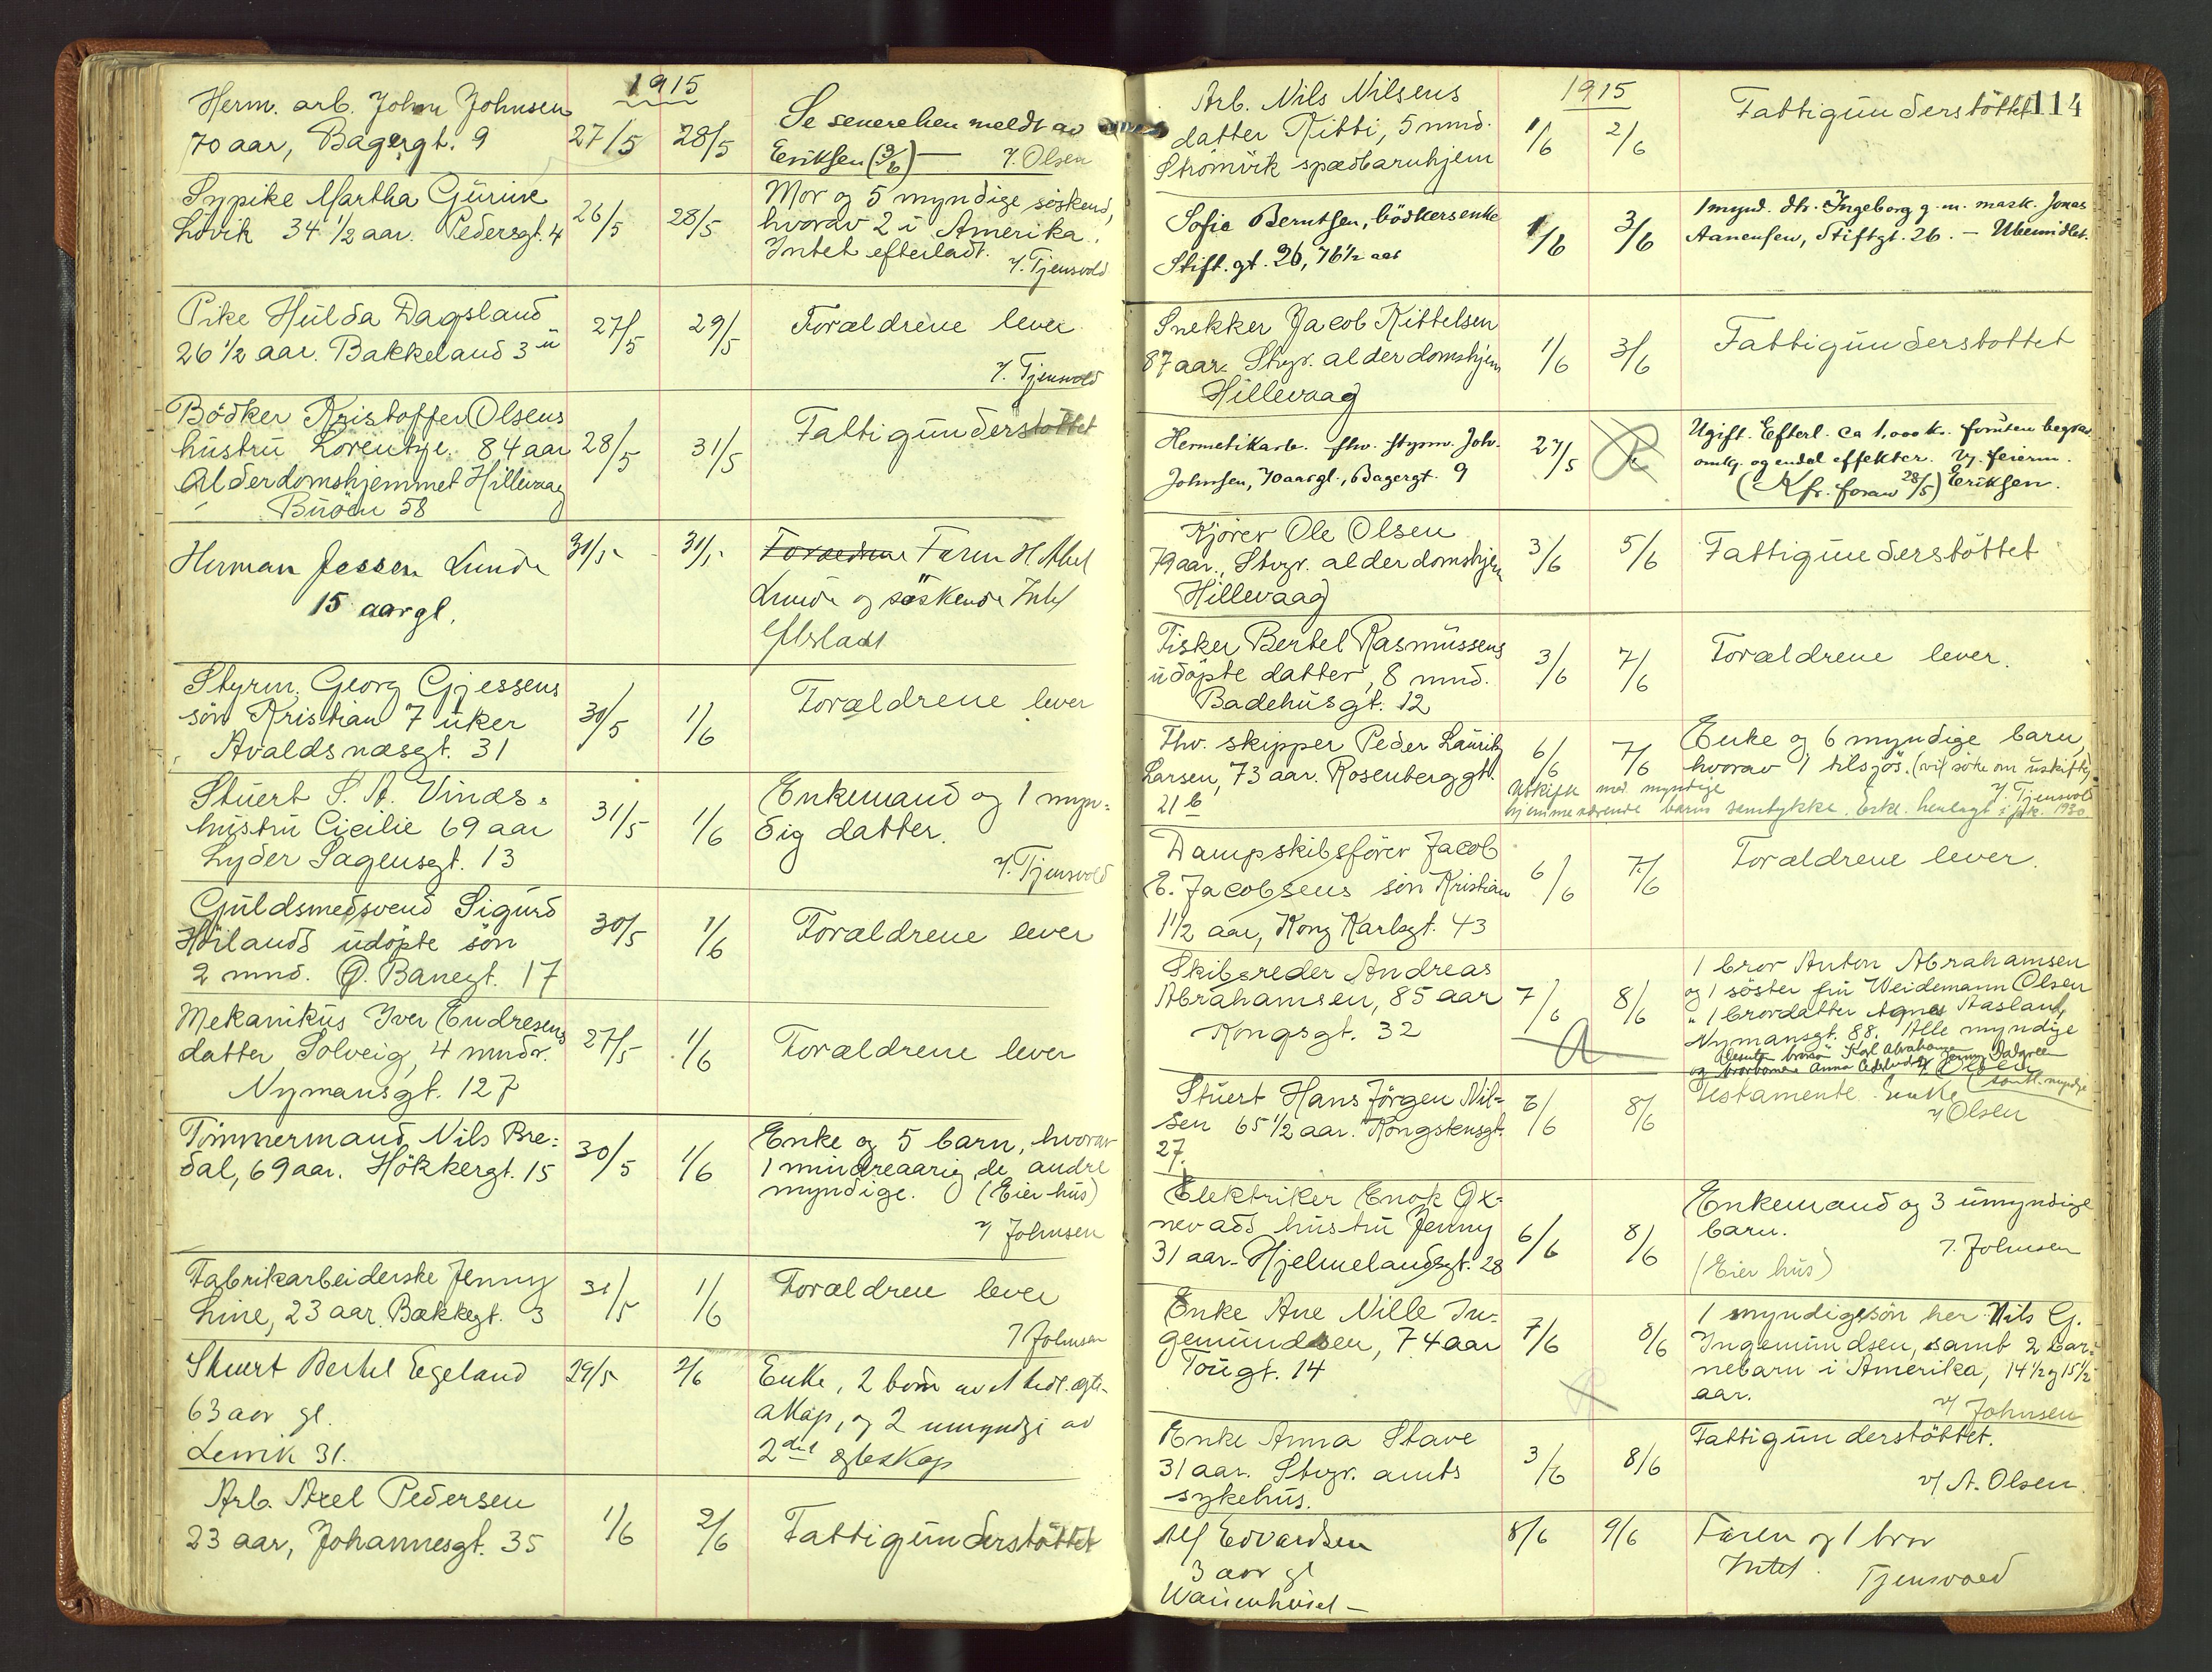 1915
Herm. arb. John Johnsen
70 aar, Bagergt. 9
27/5
28/5
Se senerehen meldt av
Eriksen (3/6) — v/. Olsen
Sypike Martha Gurine
Lövik 34 1/2 aar. Pedersgt. 4
26/5
28/5
Mor og 5 myndige söskend,
hvorav 2 i Amerika.
Intet efterladt.
v/. Tjensvold
Pike Hulda Dagsland
26 1/2 aar. Bakkeland 3
27/5
29/5
Forældrene lever
v/. Tjensvold
Bödker Kristoffer Olsens
hustru Lorentze. 84 aar
Alderdomshjemmet Hillevaag
Buöen 58
28/5
31/5
Fattigunderstöttet
Herman Jessen Lunde
15 aar gl.
31/5
31/5
Faren H. Abel
Lunde og söskende Intet
efterladt
Styrm. Georg Gjessens
sön Kristian 7 uker
Avaldsnæsgt. 31
30/5
1/6
Forældrene lever
Stuert S. A. Vinds=
hustru Cicilie 69 aar
Lyder Sagensgt. 13
31/5
1/6
Enkemand og 1 myn=
dig datter.
v/. Tjensvold
Guldsmedsvend Sigurd
Höilands udöpte sön
2 mnd. Ö. Banegt. 17
30/5
1/6
Forældrene lever
Mekanikus Iver Endresens
datter Solveig, 4 mndr.
Nymansgt. 127
27/5
1/6
Forældrene lever
Tömmermand Nils Bre=
dal, 69 aar. Hökkergt. 15
30/5
1/6
Enke og 5 barn, hvorav
1 mindreaarig, de andre
myndige. (Eier hus)
v/ Johnsen
Fabrikarbeiderske Jenny
Line, 23 aar Bakkegt. 3
31/5
1/6
Forældrene lever
v/ Johnsen
Stuert Bertel Egeland
63 aar gl.
Lervik 31.
29/5
2/6
Enke, 2 born av
og 2 umyndge av
2det
Arb. Axel Pedersen
23 aar, Johannesgt. 35
1/6
2/6
Fattigunderstöttet
1915
114
Arb. Nils Nilsens
datter Kitti, 5 mnd.
Strömvik spædbarnhjem
1/6
2/6
Fattigunderstöttet
Sofie Berntsen, bödkersenke
Stift. gt. 26, 76 1/2 aar
1/6
3/6
1 mynd. dtr. Ingeborg g. m. mask. Jonas
Aanensen, Stiftgt. 26. — Ubemidlet.
Snekker Jacob Kittelsen
87 aar. Stvgr. alderdomshjem
Hillevaag
1/6
3/6
Fattigunderstottet
Hermetikarb. fhv. styrm. Joh.
Johnsen, 70 aar gl., Bagergt. 9
27/5
Ugift. Efterl. ca 1,000 k. foruten begrav.
omkg. og endel effekter.
(Kfr. foran 28/5) Eriksen.
Kjörer Ole Olsen
79 aar., Stvgr. alderdomshjem
Hillevaag
3/6
5/6
Fattigunderstöttet
Fisker Bertel Rasmussens
udöpte datter, 8 mnd.
Badehusgt. 12
3/6
7/6
Forældrene lever.
Fhv. skipper Peder Lauritz
Larsen, 73 aar. Rosenberggt.
21 b
6/6
7/6
Enke og 6 myndige barn,
hvorav 1 tilsjös. (vil söke om uskifte)
v/ Tjensvold
Utskifte med myndige
hjemmeværende barns samtykke. Erkl. henlagt i 1930.
Dampskibsförer Jacob
E. Jacobsens sön Kristian
1 1/2 aar, Kong Karlsgt. 43
6/6
7/6
Forældrene lever.
Skibsreder Andreas
Abrahamsen, 85 aar
Kongsgt. 32
7/6
8/6
1 bror Anton Abrahamsen
og 1 söster fru Weidemann Olsen
" 1 brordatter Agnes Aasland,
Nymansgt. 88. Alle myndige
Stuert Hans Jörgen Nil=
sen 65 1/2 aar. Kongstensgt.
27.
6/6
8/6
Testamente. Enke
v/ Olsen
Elektriker Enok Ox=
nevads hustru Jenny
31 aar. Hjelmelandsgt. 28
6/6
8/6
Enkemand og 3 umyndige
barn.
v. Johnsen
(Eier hus)
Enke Ane Nille In=
gemundsen, 74 aar
Tougt. 14
7/6
8/6
1 myndig sön her: Nils G.
Ingemundsen, samt 2 bar=
nebarn i Amerika, 14 1/2 og 15 1/2
aar.
v/ Johnsen
Enke Anna Stave
31 aar. Stvgr. amts
sykehus.
3/6
8/6
Fattigunderstöttet.
v/ A. Olsen.
Alf Edvardsen
3 aar gl
Waisenhuset —
8/6
9/6
Faren og 1 bror
Intet. Tjensvold